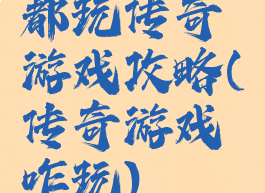 都玩传奇
游戏攻略(
传奇游戏
咋玩)